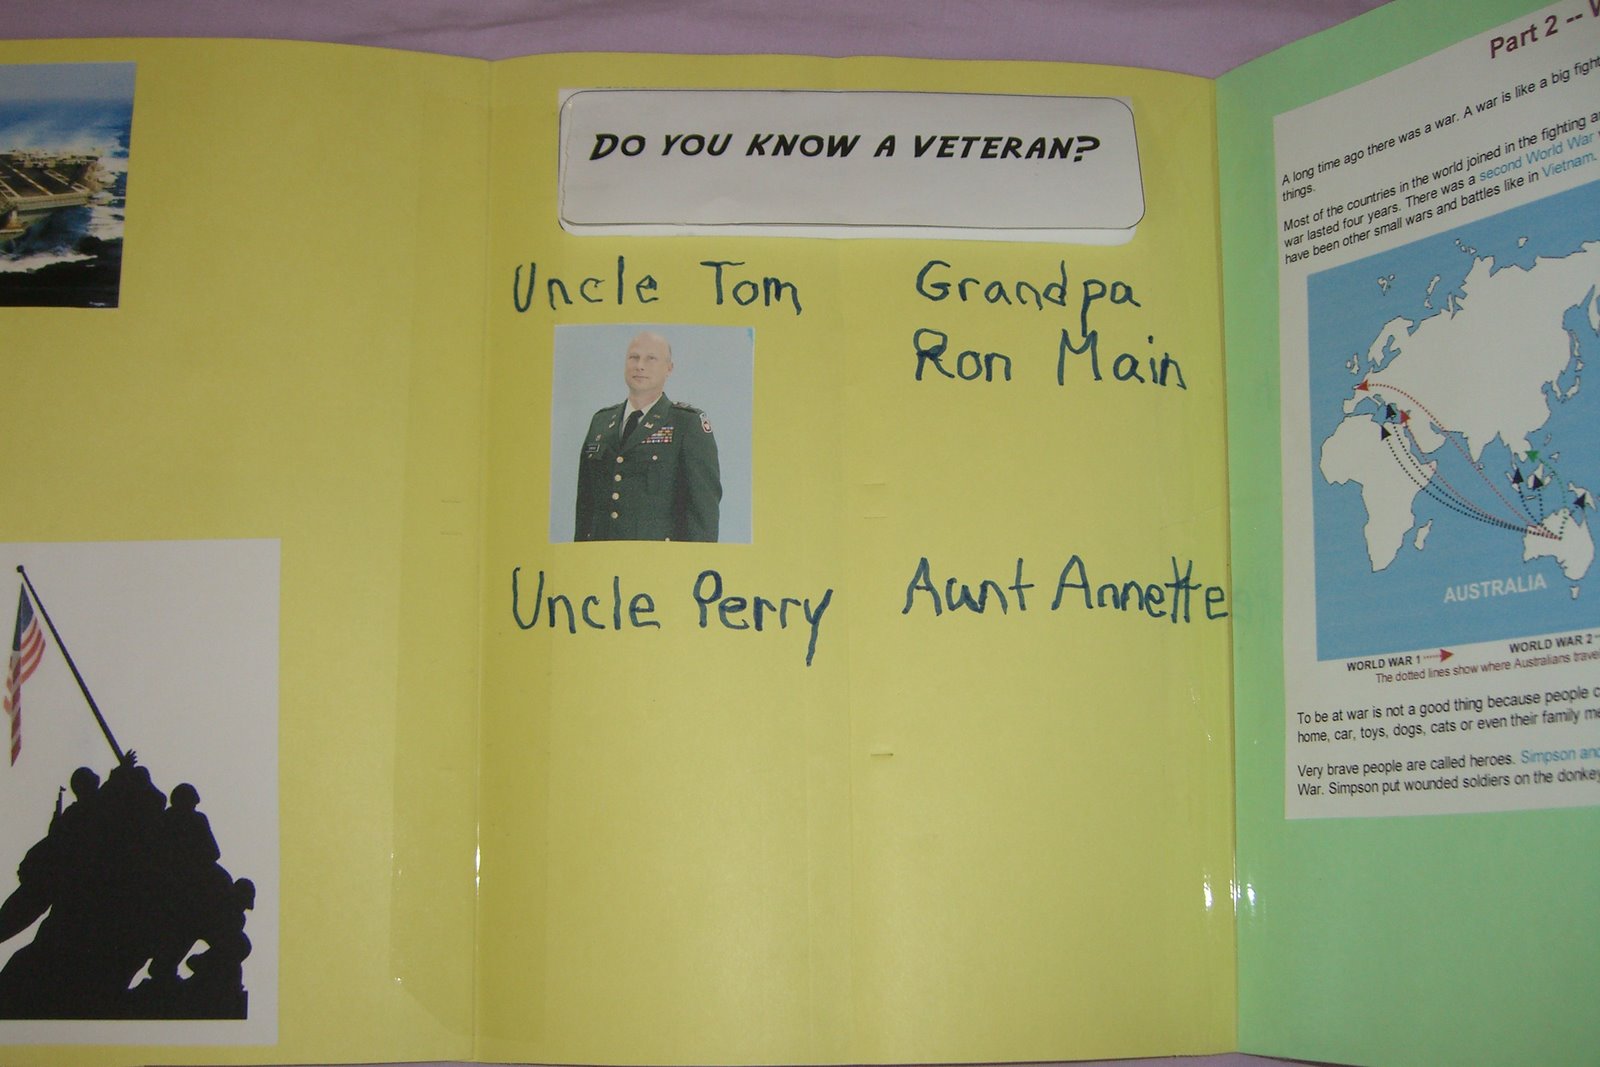 DO YOU KNOW A VETERAN?
Uncle Tom
Grandpa
Ron Main
Uncle Perry
Aunt Annette
Part 2 --
A long time ago there was a war. A war is like a big fight
things.
Most of the countries in the world joined in the fighting
war lasted four years. There was a second World War
have been other small wars and battles like in Vietnam.
AUSTRALIA
WORLD WAR 1
WORLD WAR 2
The dotted lines show where Australians
To be at war is not a good thing because people
home, car, toys, dogs, cats or even their family
Very brave people are called heroes. Simpson and
War. Simpson put wounded soldiers on the donkey